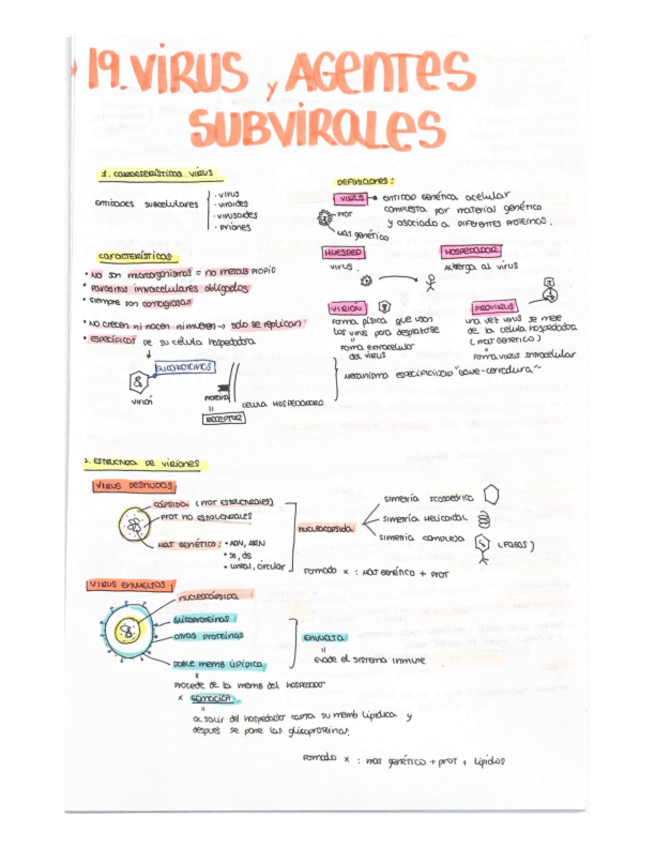 19. VIRUS y AGENTES
SUBVIRALES
1. CARACTERÍSTICAS VIRUS
entidades subcelulares
· virus
· viroides
· virusoides
· priones
CARACTERÍSTICAS
• No son microorganismos = no metab propio
• Parásitos intracelulares obligados
• siempre son contagiosos
• No crecen ni nacen ni mueren → solo se replican
• ESPECÍFICOS de su célula hospedadora
GLICOPROTEINAS
virión
proteína
||
RECEPTOR
CELULA HOSPEDADORA
mecanismo especificidad "llave-cerradura"
DEFINICIONES:
VIRUS → entidad genética acelular
compuesta por material genético
y asociado a diferentes proteínas.
PROT
MAT genético
HUESPED
virus.
HOSPEDADOR
Alberga al virus
VIRIÓN
Forma física que usan
los virus para desplazarse
||
Forma extracelular
del virus
PROVIRUS
una vez virus se mete
de la célula hospedadora
(mat genético)
||
Forma virus intracelular
2. ESTRUCTURA DE VIRIONES
VIRUS DESNUDOS
CÁPSIDA (PROT ESTRUCTURALES)
PROT NO ESTRUCTURALES
MAT GENÉTICO: • ADN, ARN
• ss, ds
• lineal, circular
nucleocápsida
simetría icosaédrica
simetría helicoidal
simetría compleja
(FAGOS)
Formado x : MAT Genético + PROT
VIRUS ENVUELTOS
nucleocápsida
GLICOPROTEÍNAS
otras proteínas
DOBLE memb lipídica
ENVUELTA
||
evade el sistema inmune
procede de la memb del hospedador
x GEMACIÓN
||
al salir del hospedador capta su memb lipídica y
después se pone las glicoproteínas.
Formado x : mat genético + prot + lípidos